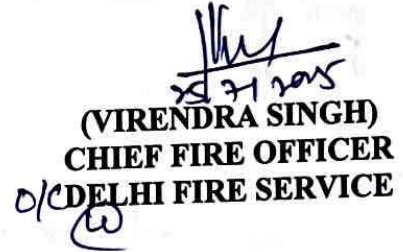 25/7/2025
(VIRENDRA SINGH)
CHIEF FIRE OFFICER
O/C DELHI FIRE SERVICE